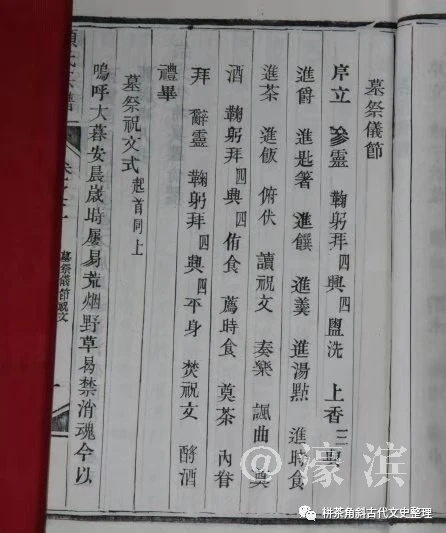 墓祭儀節
序立 參靈 鞠躬拜四興四 盥洗 上香三
進爵 進匙箸 進饌 進羹 進湯點 進時食
進茶 進飯 俯伏 讀祝文 奏樂 諷曲 奠
酒 鞠躬拜四興四 侑食 薦時食 奠茶 內眷
拜 辭靈 鞠躬拜四興四 平身 焚祝文 酹酒
禮畢
墓祭祝文式 起首同上
嗚呼大暮安晨歲時屢易荒烟野草曷禁消魂今以
墓祭儀節祝文
@濠滨
栟茶角斜古代文史整理